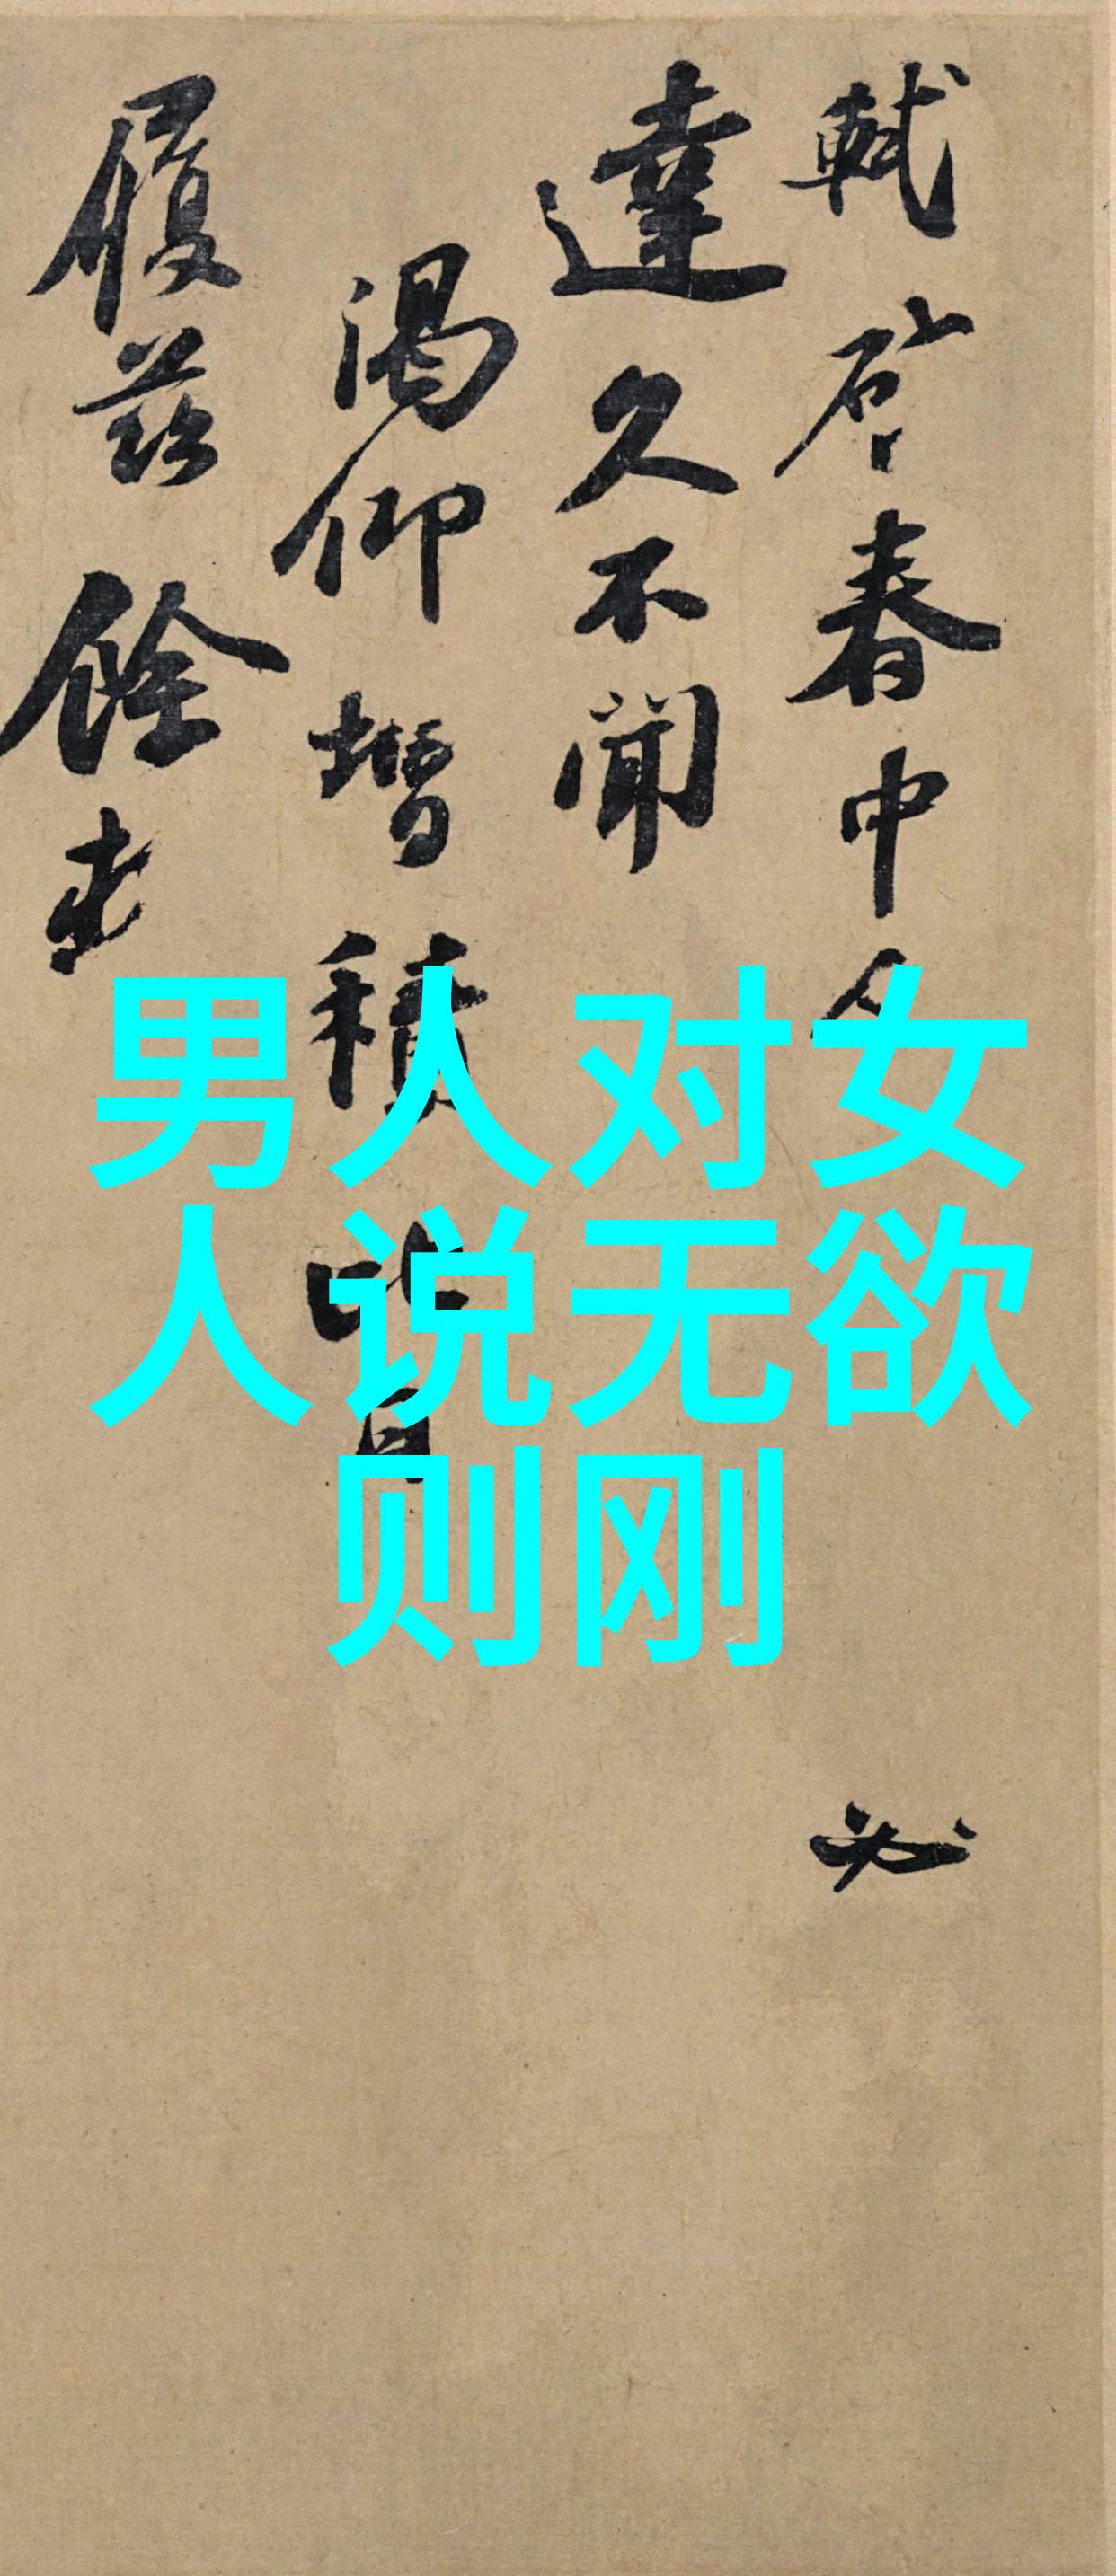 軾啓春中
必
達久不聞
渴仰增積比日
履茲餘
男人对女
人说无欲
则刚